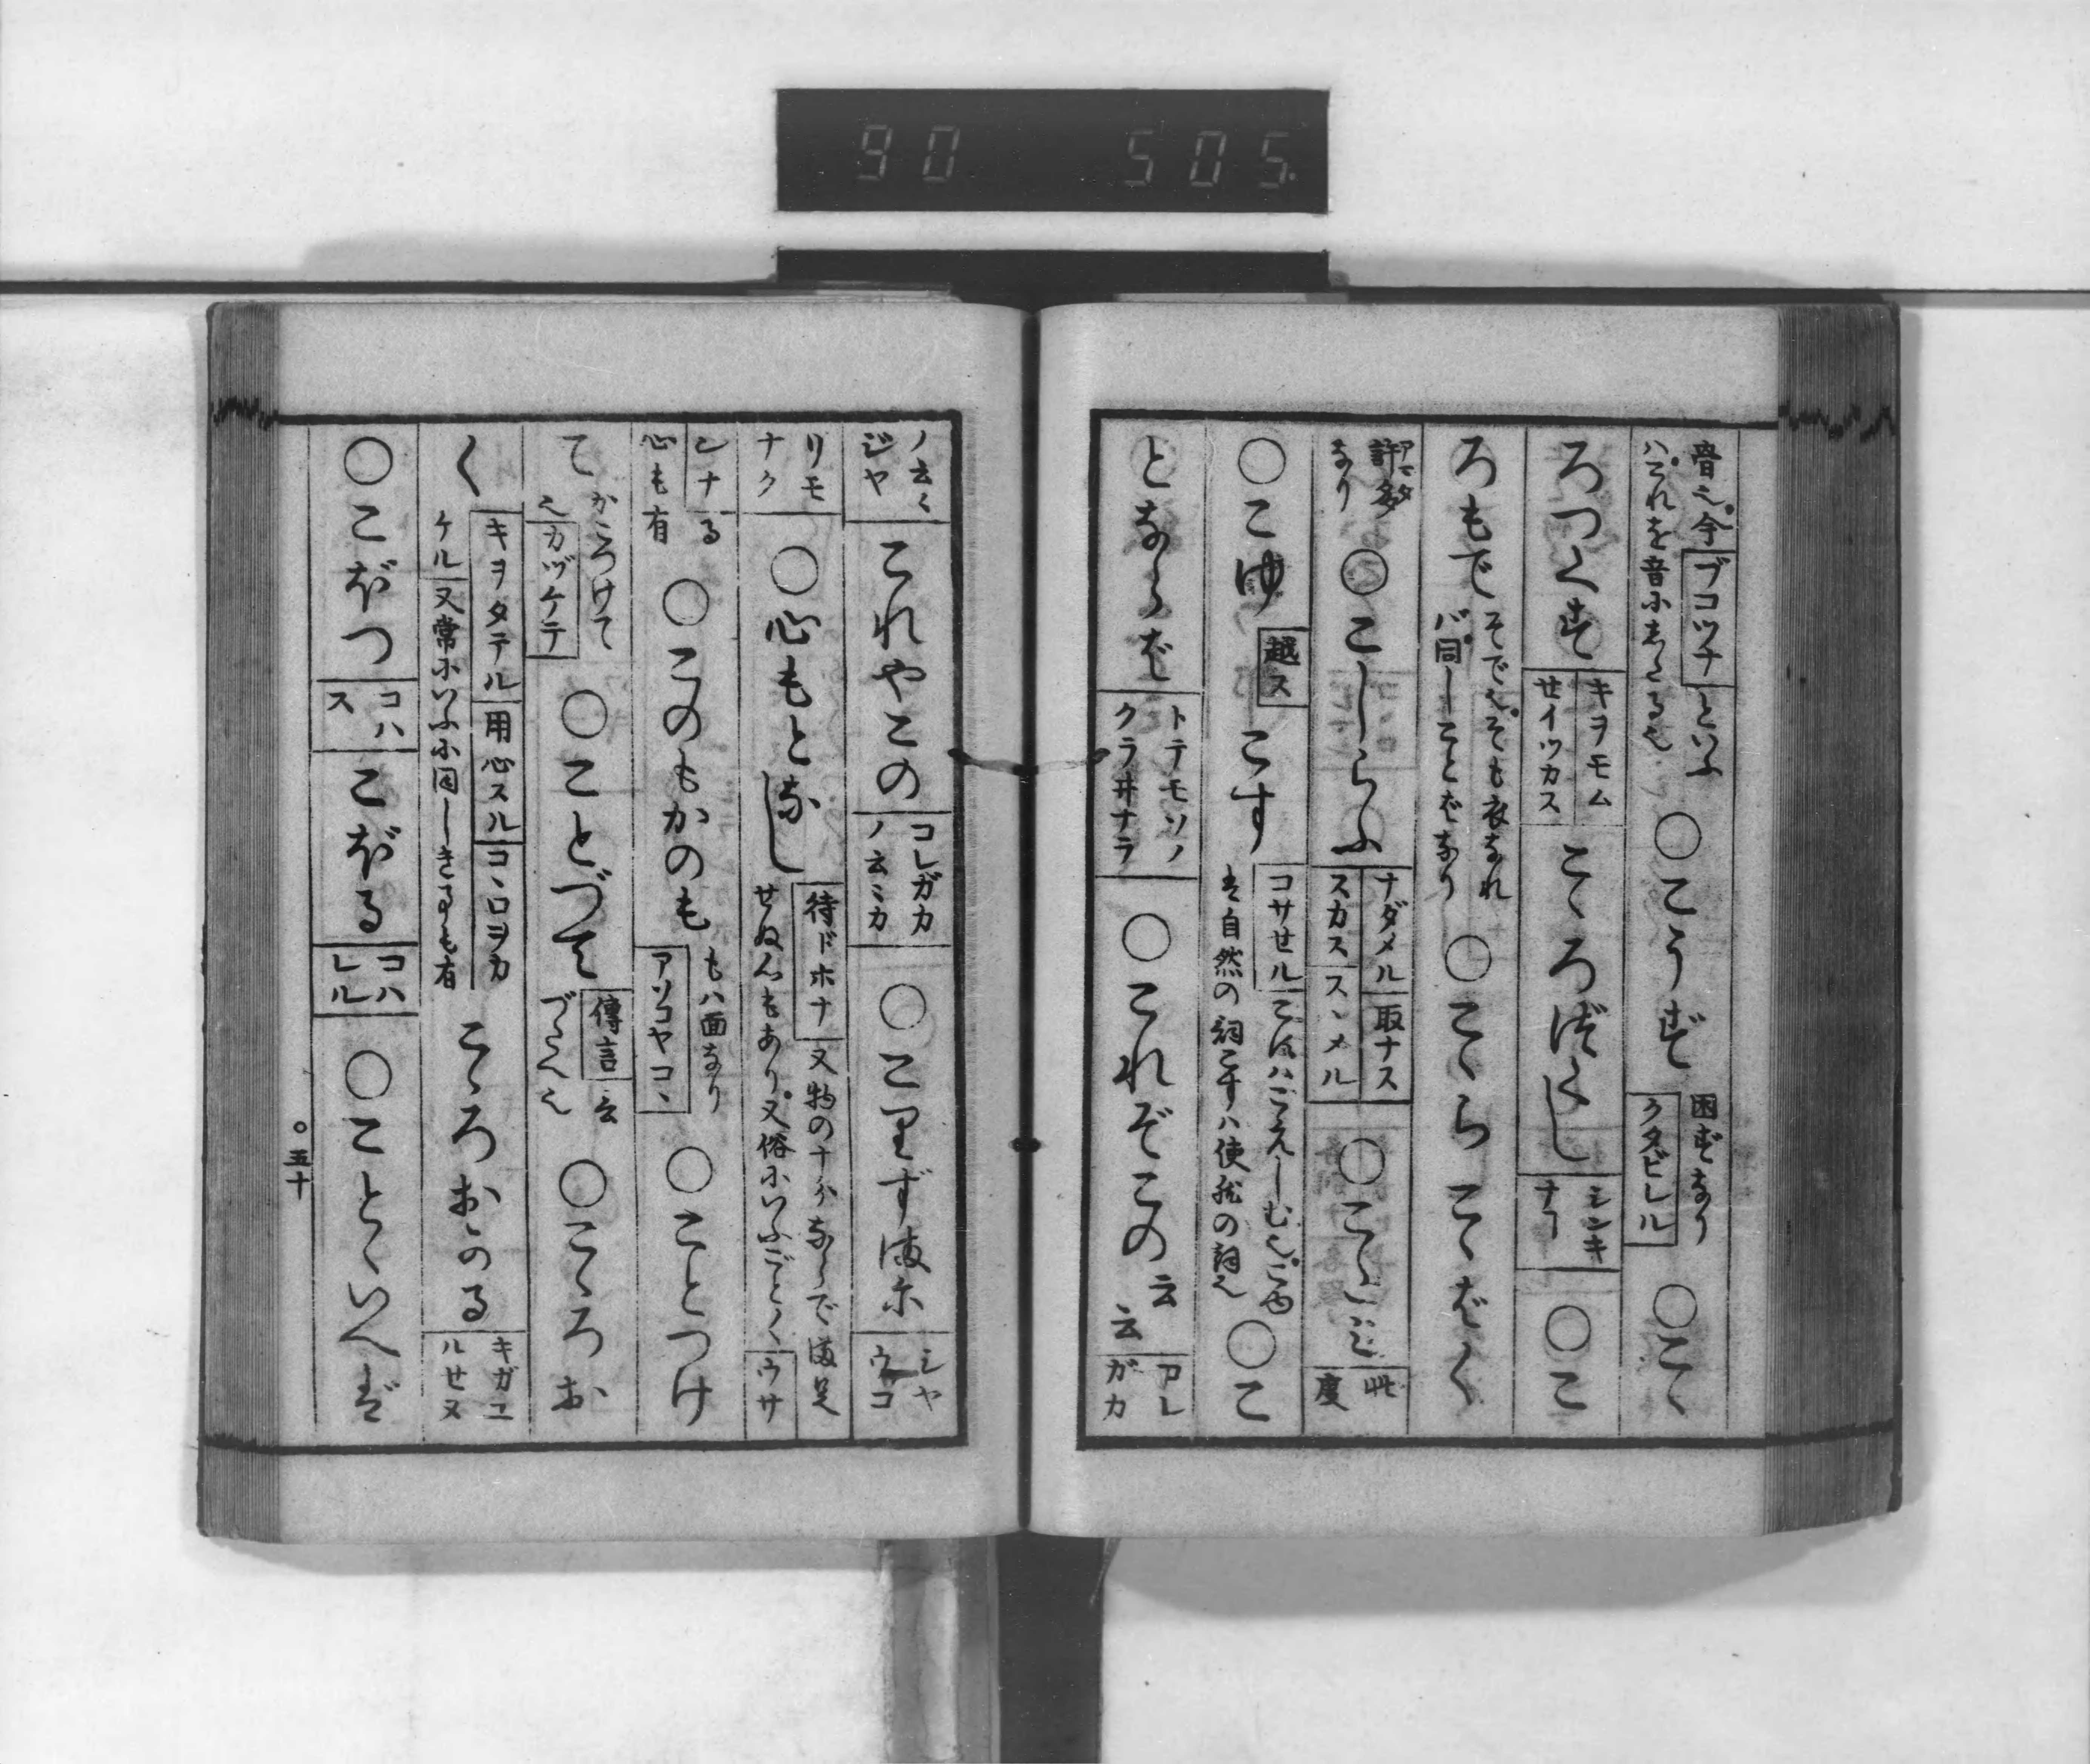 90 505
音也今ブコツナといふ
ハこれを音にあつる也
○こうず
困ずなり
クタビレル
○こゝ
ろつくす
キヲモム
セイツカス
こゝろづくし
シンキ
ナヿ
○こ
ろもで
そで也そも衣なれ
バ同しことばなり
○こゝらこゝだく
アマタ
許多
なり
○こしらふ
ナダメル 取ナス
スカス スヽメル
○こゝに
此
度
○こゆ
越ス
こす
コサセル こはハこえしむ也こゆ
は自然の詞こすハ使然の詞也
○こ
とならば
トテモソノ
クラヰナラ
○これぞこの
云
云
アレ
ガカ
ノ云〱
ジヤ
これやこの
コレガカ
ノ云〻カ
○こりずまに
シヤ
ウコ
リモ
ナク
○心もとなし
待ドホナ 又物の十分ならで満足
せぬ心もあり又俗にいふごとくウサ
ンナる
心も有
○このもかのも
もハ面なり
アソコヤコヽ
○ことつけ
て
かこつけて
也カヅケテ
○ことづて
傳言 云
づてへ也
○こゝろお
く
キヲタテル 用心スル コヽロヲカ
ケル 又常にいふに同しき事も有
こゝろおごる
キガユ
ルセヌ
○こぼつ
コハ
ス
こぼる
コハ
レル
○ことゝいへば
○五十